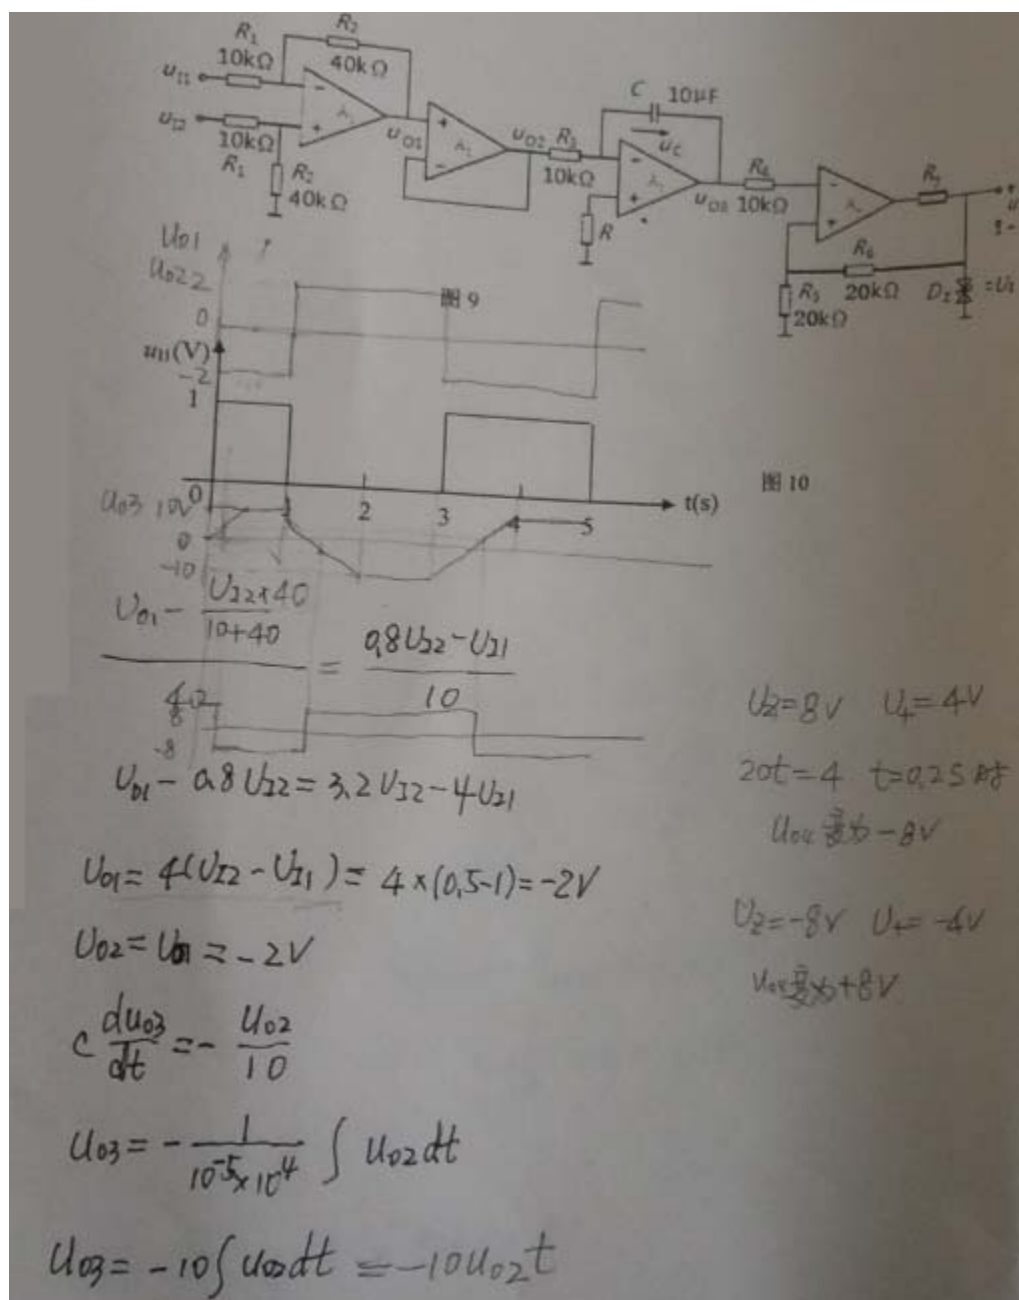 R₁ 10kΩ
R₂ 40kΩ
u_I1
u_I2
10kΩ R₁
R₂ 40kΩ
A₁
u_O1
A₂
u_O2 R₃
10kΩ
C 10μF
u_C
R
u_O3
R₄ 10kΩ
R₇
R₆ 20kΩ
R₅ 20kΩ
D_Z
U01
U02 2
0
-2
图 9
u_I1(V)
1
0 1 2 3 4 5 t(s)
图 10
U03 10V
0
-10
U01 - U_I2×40 / 10+40
= 0.8U_I2 - U_I1 / 10
40
8
-8
U01 - 0.8U_I2 = 3.2U_I2 - 4U_I1
U01 = 4(U_I2 - U_I1) = 4×(0.5-1) = -2V
U02 = U01 = -2V
C du03/dt = - U02/10
U03 = - 1/(10⁻⁵×10⁴) ∫ U02 dt
U03 = -10∫ U02 dt = -10U02 t
Uz=8V U₊=4V
20t=4 t=0.2S时
U04变为-8V
Uz=-8V U₊=-4V
U04变为+8V